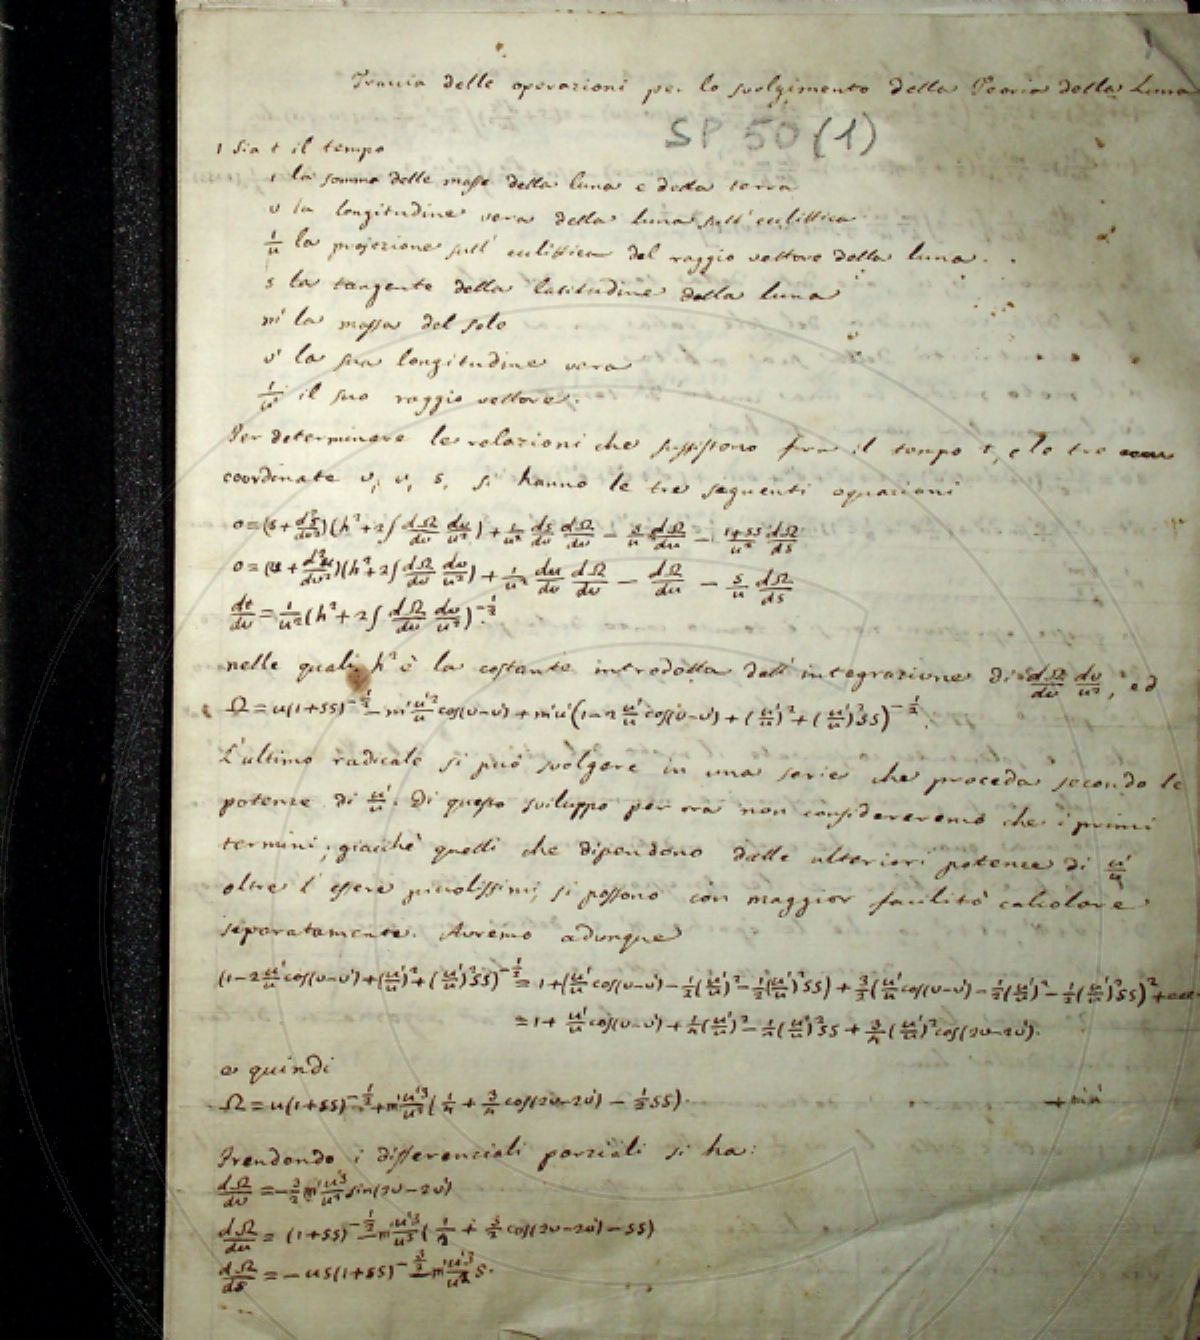 Traccia delle operazioni per lo svolgimento della Teoria della Luna
SP 50 (1)
1 Sia t il tempo
1 la somma delle masse della luna e della terra
v la longitudine vera della luna sull' eculittica
1/u la projezione sull' eculittica del raggio vettore della luna.
s la tangente della latitudine della luna
m' la massa del sole
v' la sua longitudine vera
1/u' il suo raggio vettore.
Per determinare le relazioni che sussistono fra il tempo t, e le tre
coordinate v, u, s, si hanno le tre seguenti equazioni
0=(s+d²s/dv²)(h²+2∫dΩ/dv du/u²)+1/u² ds/dv dΩ/dv − s/u dΩ/du − 1+ss/u² dΩ/ds
0=(u+d²u/dv²)(h²+2∫dΩ/dv dv/u²)+1/u² du/dv dΩ/dv − dΩ/du − s/u dΩ/ds
dt/dv=1/u²(h²+2∫dΩ/dv dv/u²)^-½.
nelle quali h² è la costante introdotta dall' integrazione di dΩ/dv dv/u², ed
Ω=u(1+ss)^-½−m'u'²/u cos(v-v')+m'u'(1-2u'/u cos(v-v')+(u'/u)²+(u'/u)²ss)^-½.
L'ultimo radicale si può svolgere in una serie che proceda secondo le
potenze di u'/u. Di questo sviluppo per ora non considereremo che i primi
termini; giacchè quelli che dipendono dalle ulteriori potenze di u'/u
oltre l' essere piccolissimi, si possono con maggior facilità calcolare
separatamente. Avremo adunque
(1-2u'/u cos(v-v')+(u'/u)²+(u'/u)²ss)^-½=1+(u'/u cos(v-v')-½(u'/u)²-½(u'/u)²ss)+3/2(u'/u cos(v-v')-½(u'/u)²-½(u'/u)²ss)²+
=1+u'/u cos(v-v')+¼(u'/u)²-½(u'/u)²ss+¾(u'/u)²cos(2v-2v').
e quindi
Ω=u(1+ss)^-½+m'u'³/u²(¼+¾cos(2v-2v')-½ss). +m'u'
Prendendo i differenziali parziali si ha:
dΩ/dv=-3/2 m'u'³/u² sin(2v-2v')
dΩ/du=(1+ss)^-½−m'u'³/u³(½+3/2cos(2v-2v')-ss)
dΩ/ds=-us(1+ss)^-3/2−m'u'³/u² s.